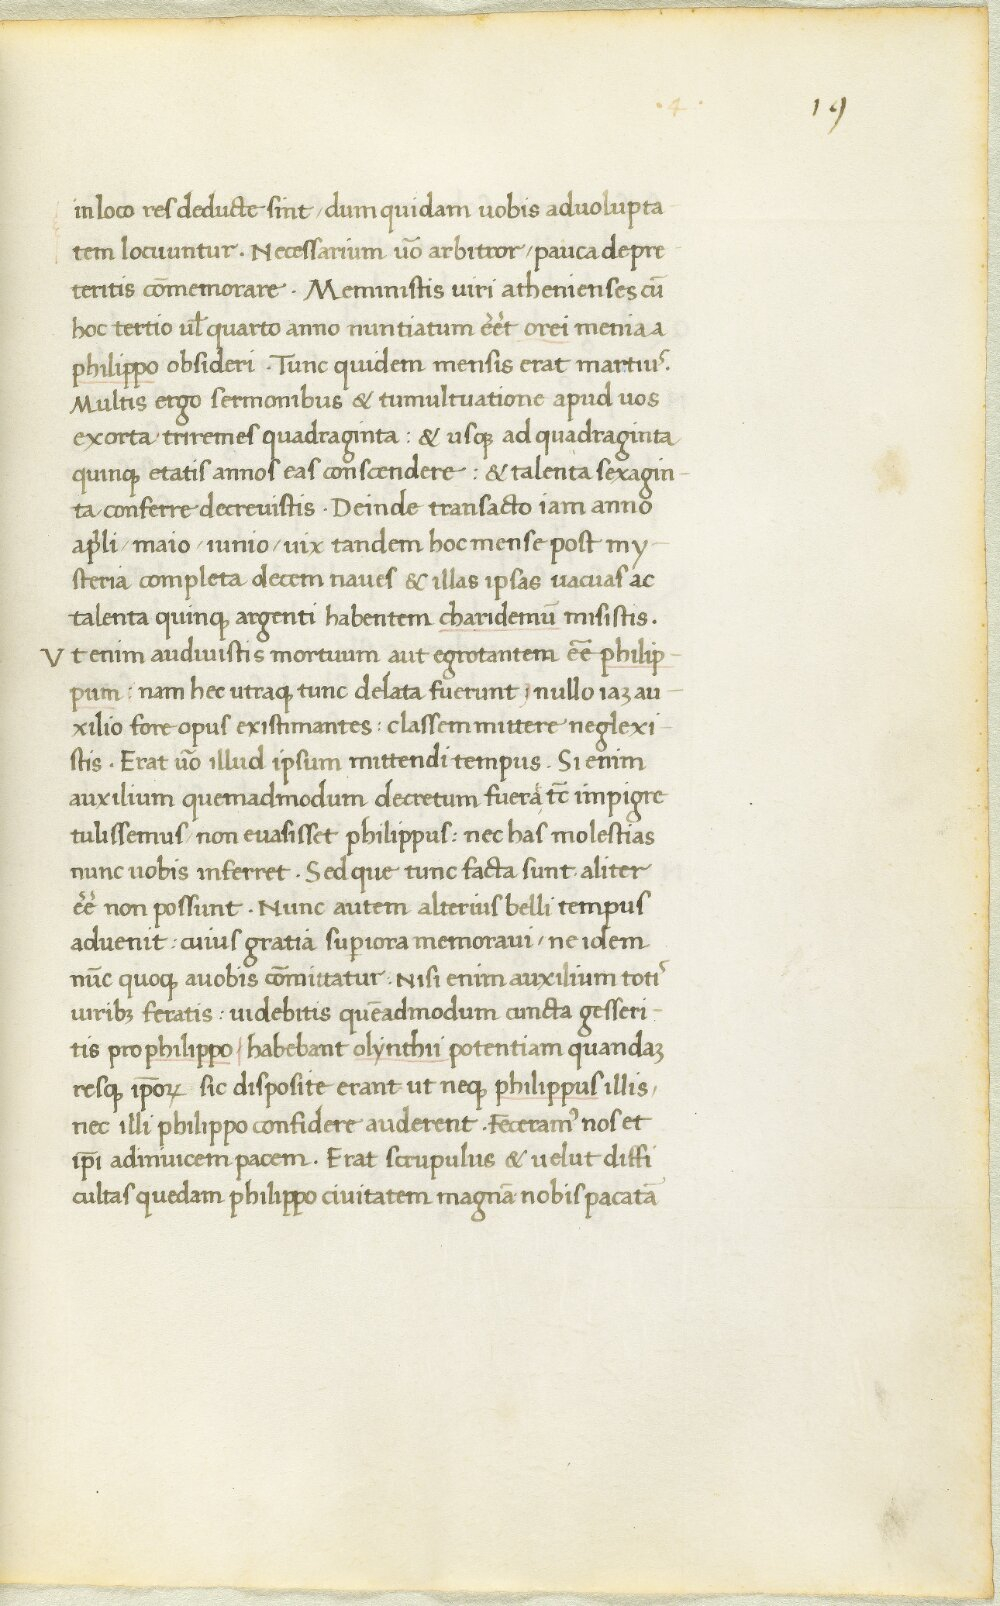 ·4· 19
in loco res deducte sint / dum quidam uobis ad uolupta
tem locuuntur. Necessarium uō arbitror / pauca de pre
teritis cōmemorare. Meministis uiri athenienses cū
hoc tertio ul quarto anno nuntiatum eēt orei menia a
philippo obsideri. Tunc quidem mensis erat martius.
Multis ergo sermonibus & tumultuatione apud uos
exorta triremes quadraginta: & usq ad quadraginta
quinq etatis annos eas conscendere: & talenta sexagin-
ta conferre decreuistis. Deinde transacto iam anno
apli / maio / iunio / uix tandem hoc mense post my-
steria completa decem naues & illas ipsas uacuas ac
talenta quinq argenti habentem charidemū misistis.
Vt enim audiuistis mortuum aut egrotantem eē philip-
pum: nam hec utraq tunc delata fuerunt; nullo iaꝫ au-
xilio fore opus existimantes: classem mittere neglexi-
stis. Erat uō illud ipsum mittendi tempus. Si enim
auxilium quemadmodum decretum fuerat tc̄ impigre
tulissemus / non euasisset philippus: nec has molestias
nunc uobis inferret. Sed que tunc facta sunt aliter
eē non possunt. Nunc autem alterius belli tempus
aduenit: cuius gratia superiora memoraui / ne idem
nūc quoq a uobis cōmittatur. Nisi enim auxilium totis
uiribꝫ feratis: uidebitis quēadmodum cuncta gesseri-
tis pro philippo / habebant olynthii potentiam quandaꝫ
resq ipoꝝ sic disposite erant ut neq philippus illis /
nec illi philippo confidere auderent. Feceramꝰ nos et
ipi adinuicem pacem. Erat scrupulus & uelut diffi
cultas quedam philippo ciuitatem magnā nobis pacatā